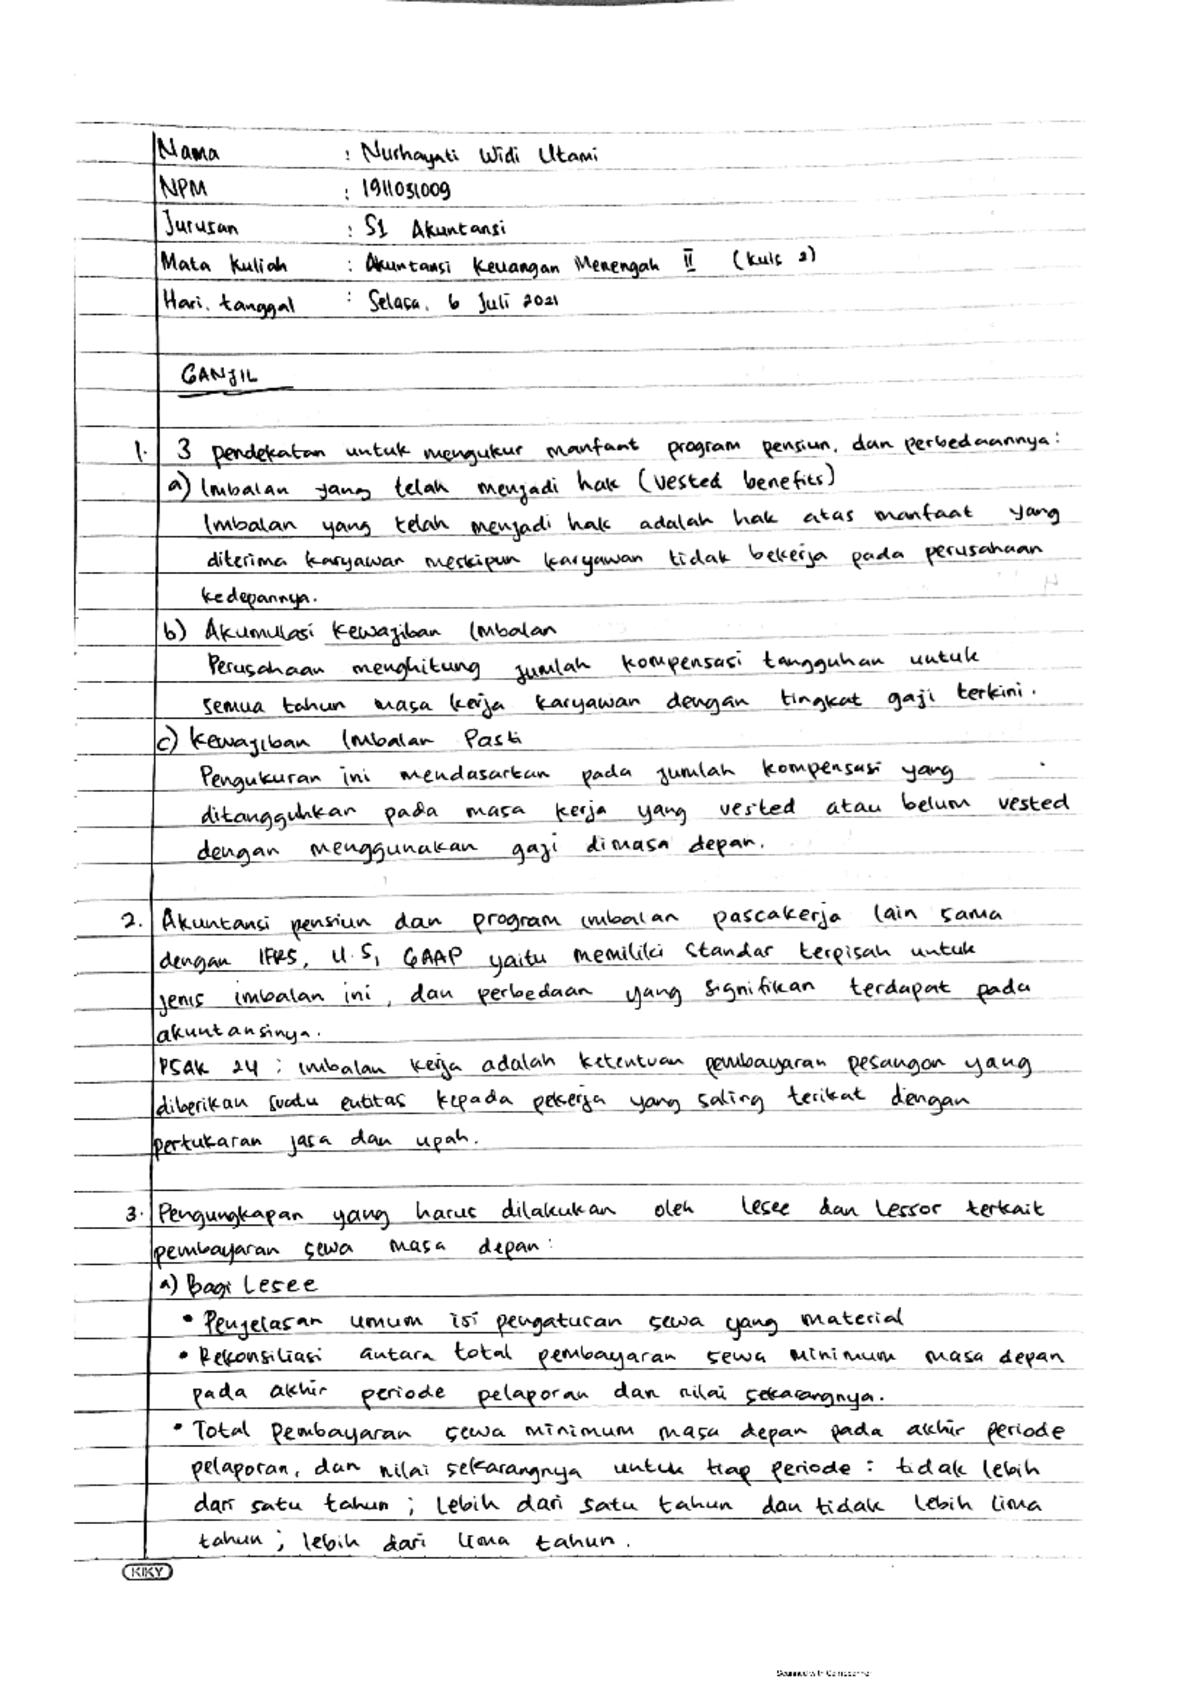 Nama : Nurhayati Widi Utami
NPM : 1911031009
Jurusan : S1 Akuntansi
Mata Kuliah : Akuntansi Keuangan Menengah II (Kuis 2)
Hari, tanggal : Selasa, 6 Juli 2021
GANJIL
1. 3 pendekatan untuk mengukur manfaat program pensiun, dan perbedaannya:
a) Imbalan yang telah menjadi hak (vested benefits)
Imbalan yang telah menjadi hak adalah hak atas manfaat yang
diterima karyawan meskipun karyawan tidak bekerja pada perusahaan
kedepannya.
b) Akumulasi Kewajiban Imbalan
Perusahaan menghitung jumlah kompensasi tangguhan untuk
semua tahun masa kerja karyawan dengan tingkat gaji terkini.
c) Kewajiban Imbalan Pasti
Pengukuran ini mendasarkan pada jumlah kompensasi yang
ditangguhkan pada masa kerja yang vested atau belum vested
dengan menggunakan gaji dimasa depan.
2. Akuntansi pensiun dan program imbalan pascakerja lain sama
dengan IFRS, U.S, GAAP yaitu memiliki standar terpisah untuk
jenis imbalan ini, dan perbedaan yang signifikan terdapat pada
akuntansinya.
PSAK 24 : imbalan kerja adalah ketentuan pembayaran pesangon yang
diberikan suatu entitas kepada pekerja yang saling terikat dengan
pertukaran jasa dan upah.
3. Pengungkapan yang harus dilakukan oleh Lesee dan Lessor terkait
pembayaran sewa masa depan:
a) Bagi Lesee
• Penjelasan umum isi pengaturan sewa yang material
• Rekonsiliasi antara total pembayaran sewa minimum masa depan
pada akhir periode pelaporan dan nilai sekarangnya.
• Total Pembayaran sewa minimum masa depan pada akhir periode
pelaporan, dan nilai sekarangnya untuk tiap periode : tidak lebih
dari satu tahun ; lebih dari satu tahun dan tidak lebih lima
tahun ; lebih dari lima tahun.
KIKY
Scanned with CamScanner